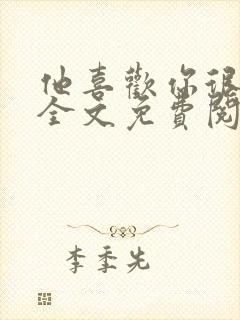 他喜歡你很
全文免費閱
李季先